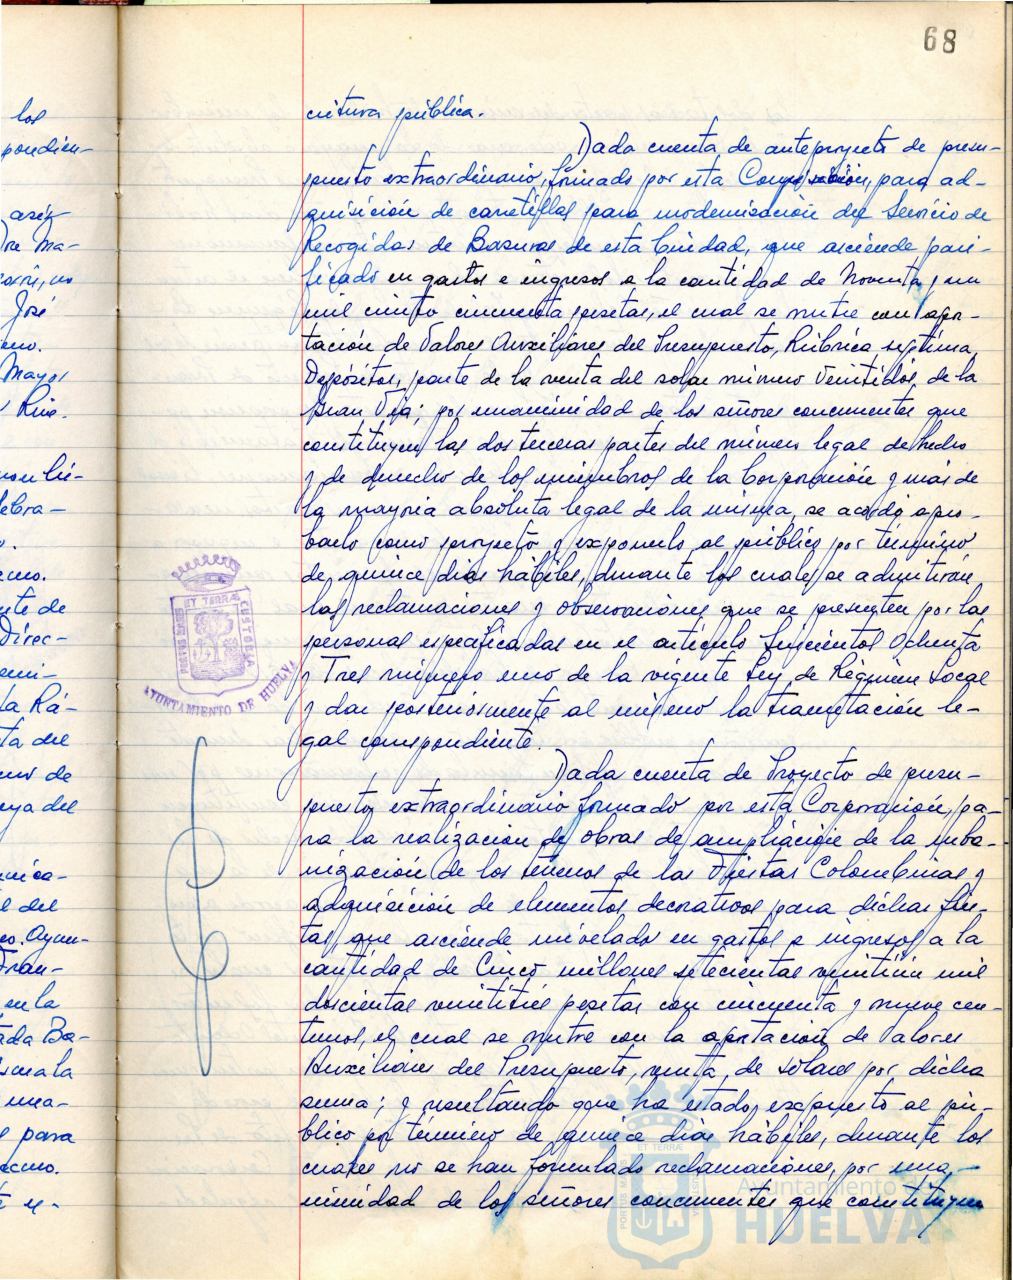 68
los
critura pública.
pondien-
Dada cuenta de anteproyecto de presu-
puesto extraordinario, formado por esta Corporación, para ad-
quisición de carretillas para modernización del Servicio de
Recogidas de Basuras de esta Ciudad, que asciende pari-
ficado en gastos e ingresos a la cantidad de Noventa y un
mil ciento cincuenta pesetas, el cual se nutre con apor-
tación de Valores Auxiliares del Presupuesto, Rúbrica séptima,
Depósitos, parte de la venta del solar número Veintidós, de la
Gran Vía; por unanimidad de los señores concurrentes que
constituyen las dos terceras partes del número legal de hecho
y de derecho de los miembros de la Corporación y más de
la mayoría absoluta legal de la misma, se acordó apro-
barlo como proyecto y exponerlo al público por término
de quince días hábiles, durante los cuales se admitirán
las reclamaciones y observaciones que se presenten por las
personas especificadas en el artículo Seiscientos Ochenta
y Tres número uno de la vigente Ley de Régimen Local
y dar posteriormente al mismo la tramitación le-
gal correspondiente.
Dada cuenta de Proyecto de presu-
puesto extraordinario formado por esta Corporación, pa-
ra la realización de obras de ampliación de la urba-
nización de los terrenos de las Fiestas Colombinas y
adquisición de elementos decorativos para dichas fies-
tas, que asciende nivelado en gastos e ingresos a la
cantidad de Cinco millones setecientas veintiún mil
doscientas veintitrés pesetas con cincuenta y nueve cén-
timos, el cual se nutre con la aportación de Valores
Auxiliares del Presupuesto, venta de solares por dicha
suma; y resultando que ha estado expuesto al pú-
blico por término de quince días hábiles, durante los
cuales no se han formulado reclamaciones, por una-
nimidad de los señores concurrentes que constituyen
José
Mayor
Ruiz.
lebra-
nte de
Direc-
la Rá-
ta del
en la
para
PORTUS MARIS
ET TERRÆ
CUSTODIA
AYUNTAMIENTO DE HUELVA
ET TERRÆ
PORTUS MARIS
Ayuntamiento de
HUELVA